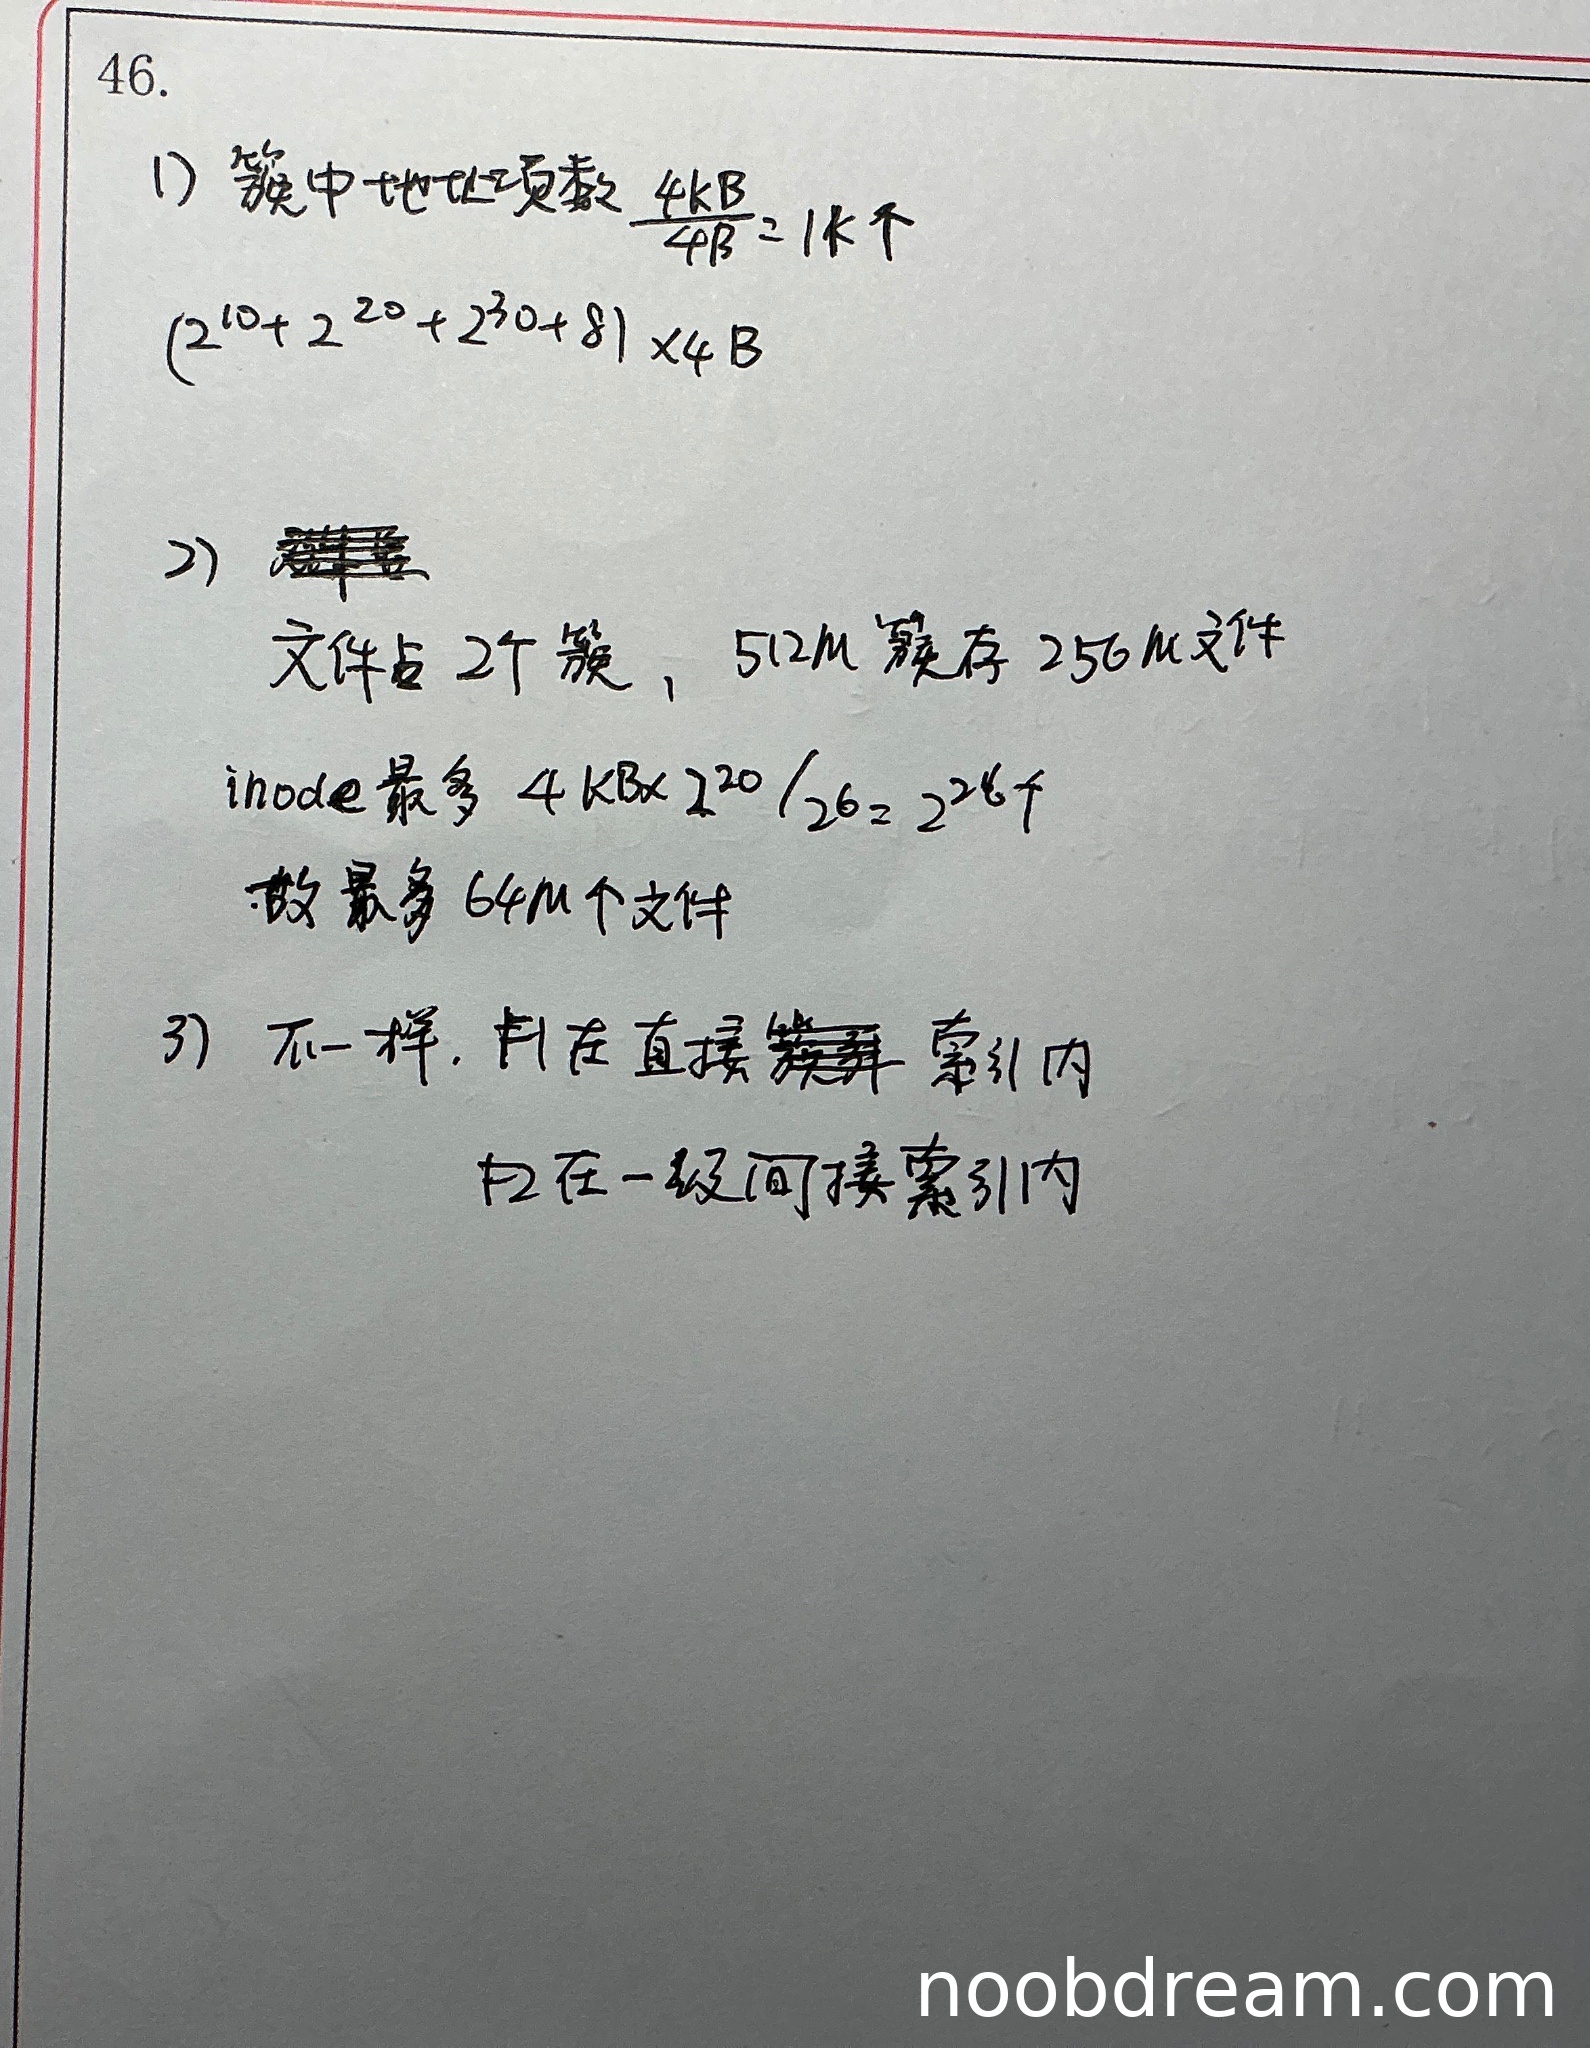 46.
1) 簇中地址项数 4KB/4B = 1K个
(2^10 + 2^20 + 2^30 + 8) ×4B
2)
文件占2个簇, 512M簇存256M文件
inode最多 4KB×2^20/26 = 2^26个
故最多64M个文件
3) 不一样. F1在直接索引内
F2在一级间接索引内
noobdream.com